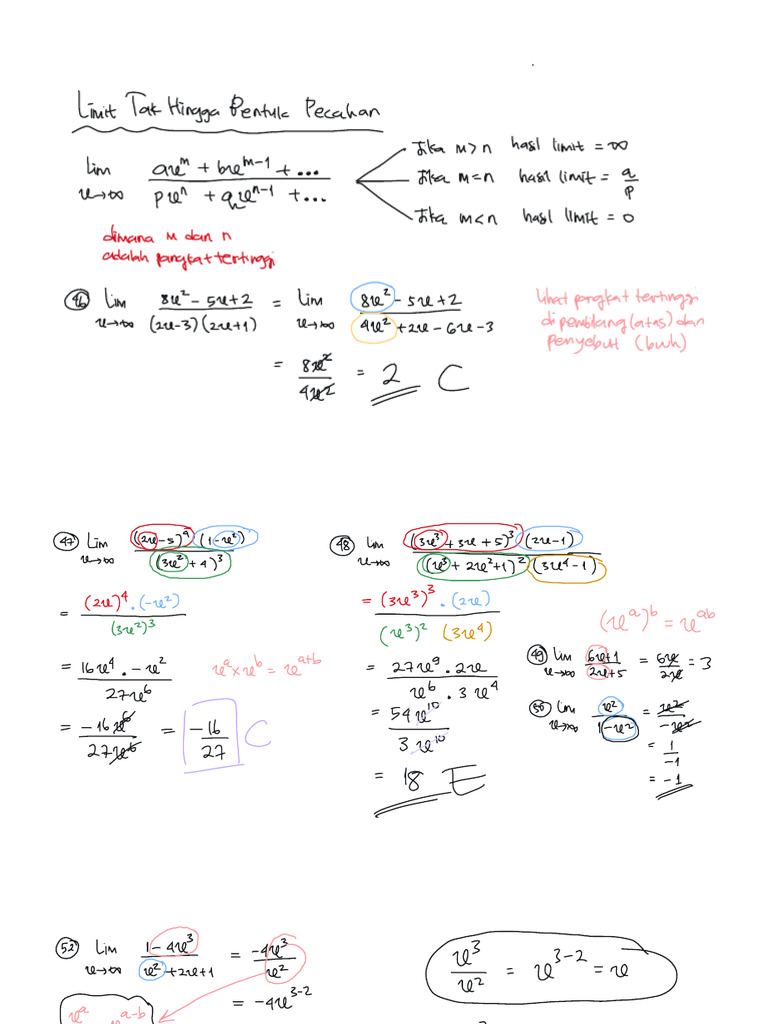 Limit Tak Hingga Bentuk Pecahan
lim x→∞ (ax^m + bx^(m-1) + ...) / (px^n + qx^(n-1) + ...)
Jika m > n hasil limit = ∞
Jika m = n hasil limit = a/p
Jika m < n hasil limit = 0
dimana m dan n
adalah pangkat tertinggi
46 lim x→∞ (8x² - 5x + 2) / ((2x-3)(2x+1)) = lim x→∞ (8x² - 5x + 2) / (4x² + 2x - 6x - 3)
= 8x² / 4x² = 2 C
lihat pangkat tertinggi
di pembilang (atas) dan
penyebut (bwh)
47 lim x→∞ ((2x-5)⁴ (1-x²)) / (3x²+4)³
= ((2x)⁴ . (-x²)) / (3x²)³
= (16x⁴ . -x²) / 27x⁶
x^a × x^b = x^(a+b)
= -16x⁶ / 27x⁶ = -16/27 C
48 lim x→∞ ((3x³ + 3x + 5)³ (2x-1)) / ((x³ + 2x² + 1)² (3x⁴-1))
= ((3x³)³ . (2x)) / ((x³)² (3x⁴))
= (27x⁹ . 2x) / (x⁶ . 3x⁴)
= 54x¹⁰ / 3x¹⁰
= 18 E
(x^a)^b = x^(ab)
49 lim x→∞ (6x+1) / (2x+5) = 6x / 2x = 3
50 lim x→∞ x² / (1-x²) = x² / -x²
= 1 / -1
= -1
52 lim x→∞ (1 - 4x³) / (x² + 2x + 1) = -4x³ / x²
= -4x^(3-2)
x^a x^(a-b)
x³ / x² = x^(3-2) = x